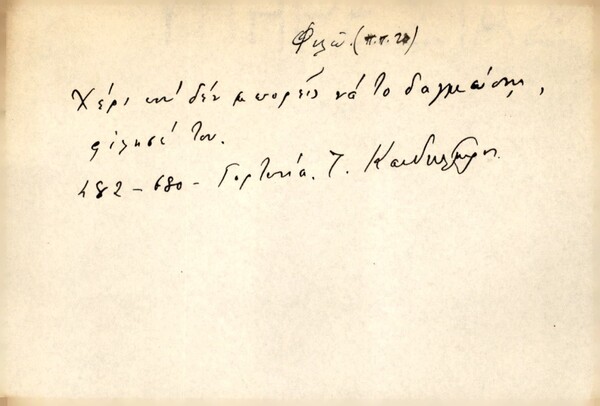 Φιλῶ. (π.π. 20)
Χέρι ποὺ δέν μπορεῖς νά το δαγκώσῃς,
φίλησέ του.
482-680- Γορτυνία. Τ. Κανδηλῶρος